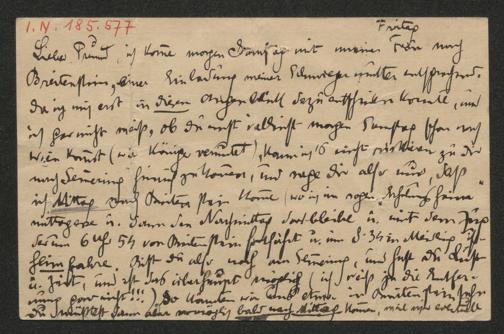 I.N. 185.577
Freitag
Lieber Freund, ich komme morgen Samstag mit meiner Frau nach
Breitenstein, einer Einladung meiner Schwiegermutter entsprechend.
Da ich mich erst in diesem Augenblick dazu entschließen konnte, und
ich gar nicht weiß, ob du nicht vielleicht morgen Samstag schon nach
Wien kommst (wie König vermutet), kann ich's nicht zu dir
nach Semmering hinauf zu kommen, und sage dir also nur, daß
ich Mittag nach Breitenstein komme (wo ich im
mittagesse u. dann den Nachmittag dortbleibe u. mit dem Zug
der um 6 Uhr 54 von Breitenstein fortfährt u. um 8.34 in Meidling ist
heim fahre. Bist du also noch am Semmering, und hast du Lust
u. Zeit, und ist das überhaupt möglich (ich weiß ja die Entfer-
nung gar nicht!!!) so könnten wir uns etwa in Breitenstein sehn
du müßtest dann aber womöglich bald nach Mittag kommen, weil wir eventuell